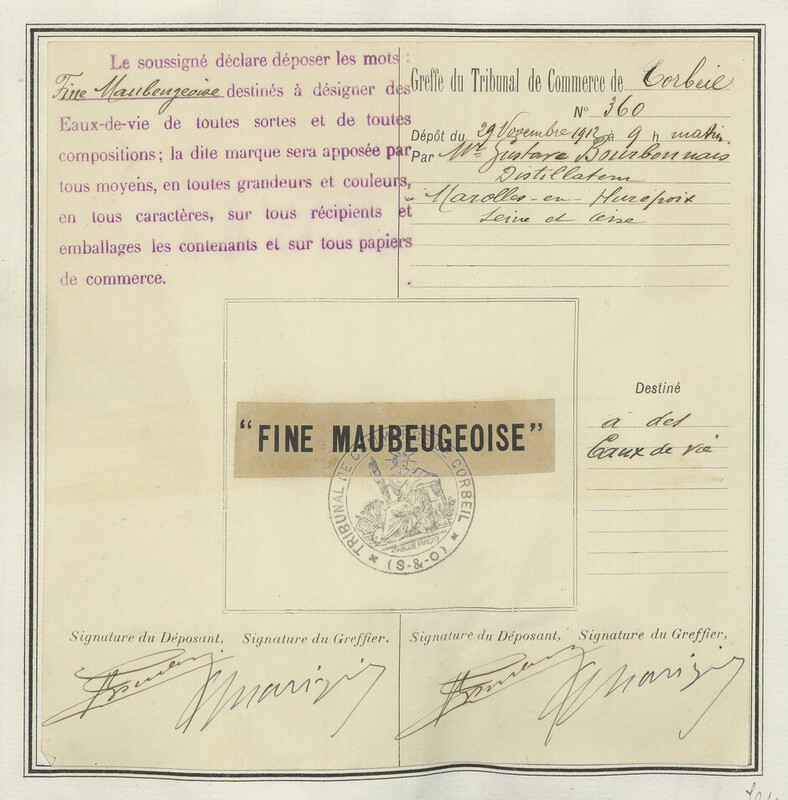 Le soussigné déclare déposer les mots :
Fine Maubeugeoise destinés à désigner des
Eaux-de-vie de toutes sortes et de toutes
compositions ; la dite marque sera apposée par
tous moyens, en toutes grandeurs et couleurs,
en tous caractères, sur tous récipients et
emballages les contenants et sur tous papiers
de commerce.
Greffe du Tribunal de Commerce de Corbeil
N° 360
Dépôt du 29 Novembre 1912 à 9 h matin
Par Mr Gustave Bourbonnais
Distillateur
à Marolles-en-Hurepoix
Seine et Oise
"FINE MAUBEUGEOISE"
TRIBUNAL DE COMMERCE DE CORBEIL
RÉPUBLIQUE FRANÇAISE
(S-&-O)
Destiné
à des
Eaux de vie
Signature du Déposant, Signature du Greffier,
Signature du Déposant, Signature du Greffier,